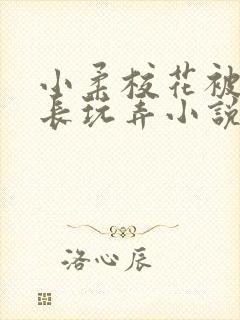 小柔校花被
长玩弄小説
洛心辰